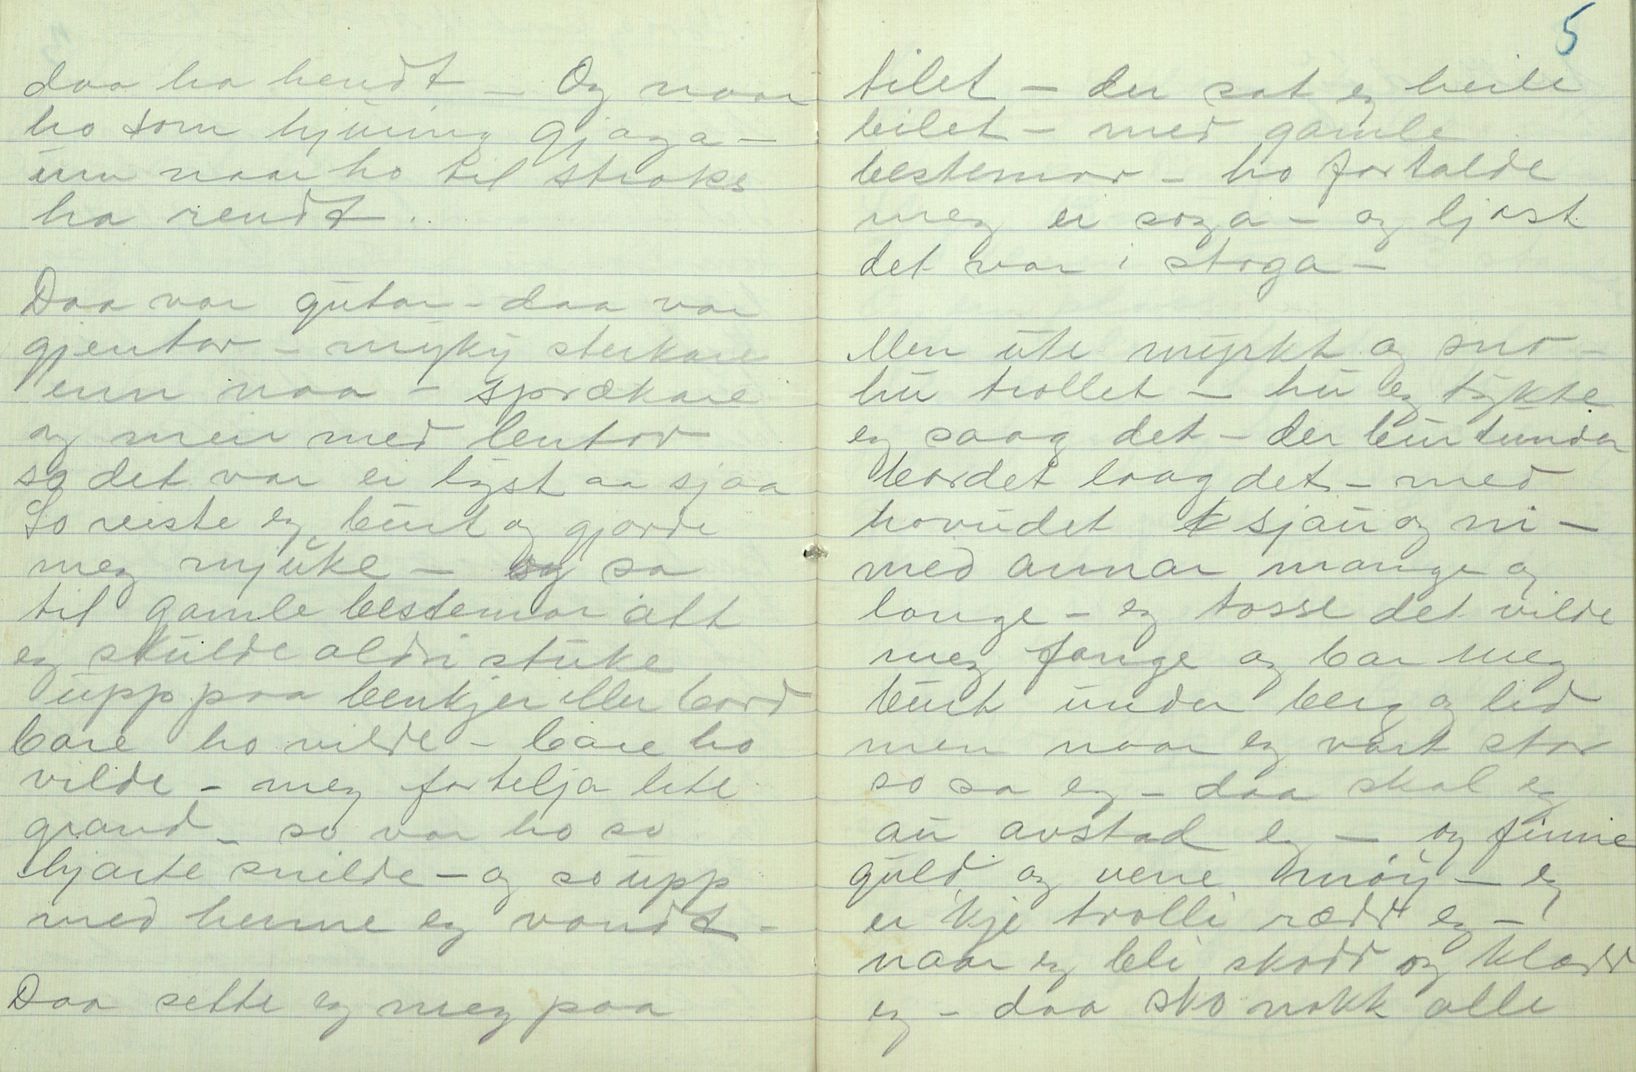 daa ha hendt – Og naar
ho som hjuring gjaga –
um naar ho til straks
ha rendt.
Daa var gutar – daa var
gjentor – myky sterkare
enn naa – sprækare
og meir med lentor
so det var ei lyst aa sjaa
So reiste eg burt og gjorde
meg mjuke – og sa
til gamle bestemor att
eg skulde aldri stuke
upp paa benkjer eller bord
bare ho vilde – bare ho
vilde – meg fortelja lite
grand – so var ho so
hjarte snilde – og so upp
med henne eg vandt –
Daa sette eg meg paa
5
tilet – der sat eg heile
bilet – med gamle
bestemor – ho fortalde
meg ei soga – og ljost
det var i stoga –
Men ute myrkt og snø –
hu trollet – hu eg tykte
eg saag det – der burtunder
bordet laag det – med
hovudet sjau og ni –
med armar mange og
lange – eg tosse det vilde
meg fange og bar meg
burt under berg og lid
men naar eg vart stor
so sa eg – daa skal eg
au avstad eg – og finne
guld og vene møy – eg
er kje trolli rædd eg –
naar eg bli skodd og klædd
eg – daa sko nokk alle